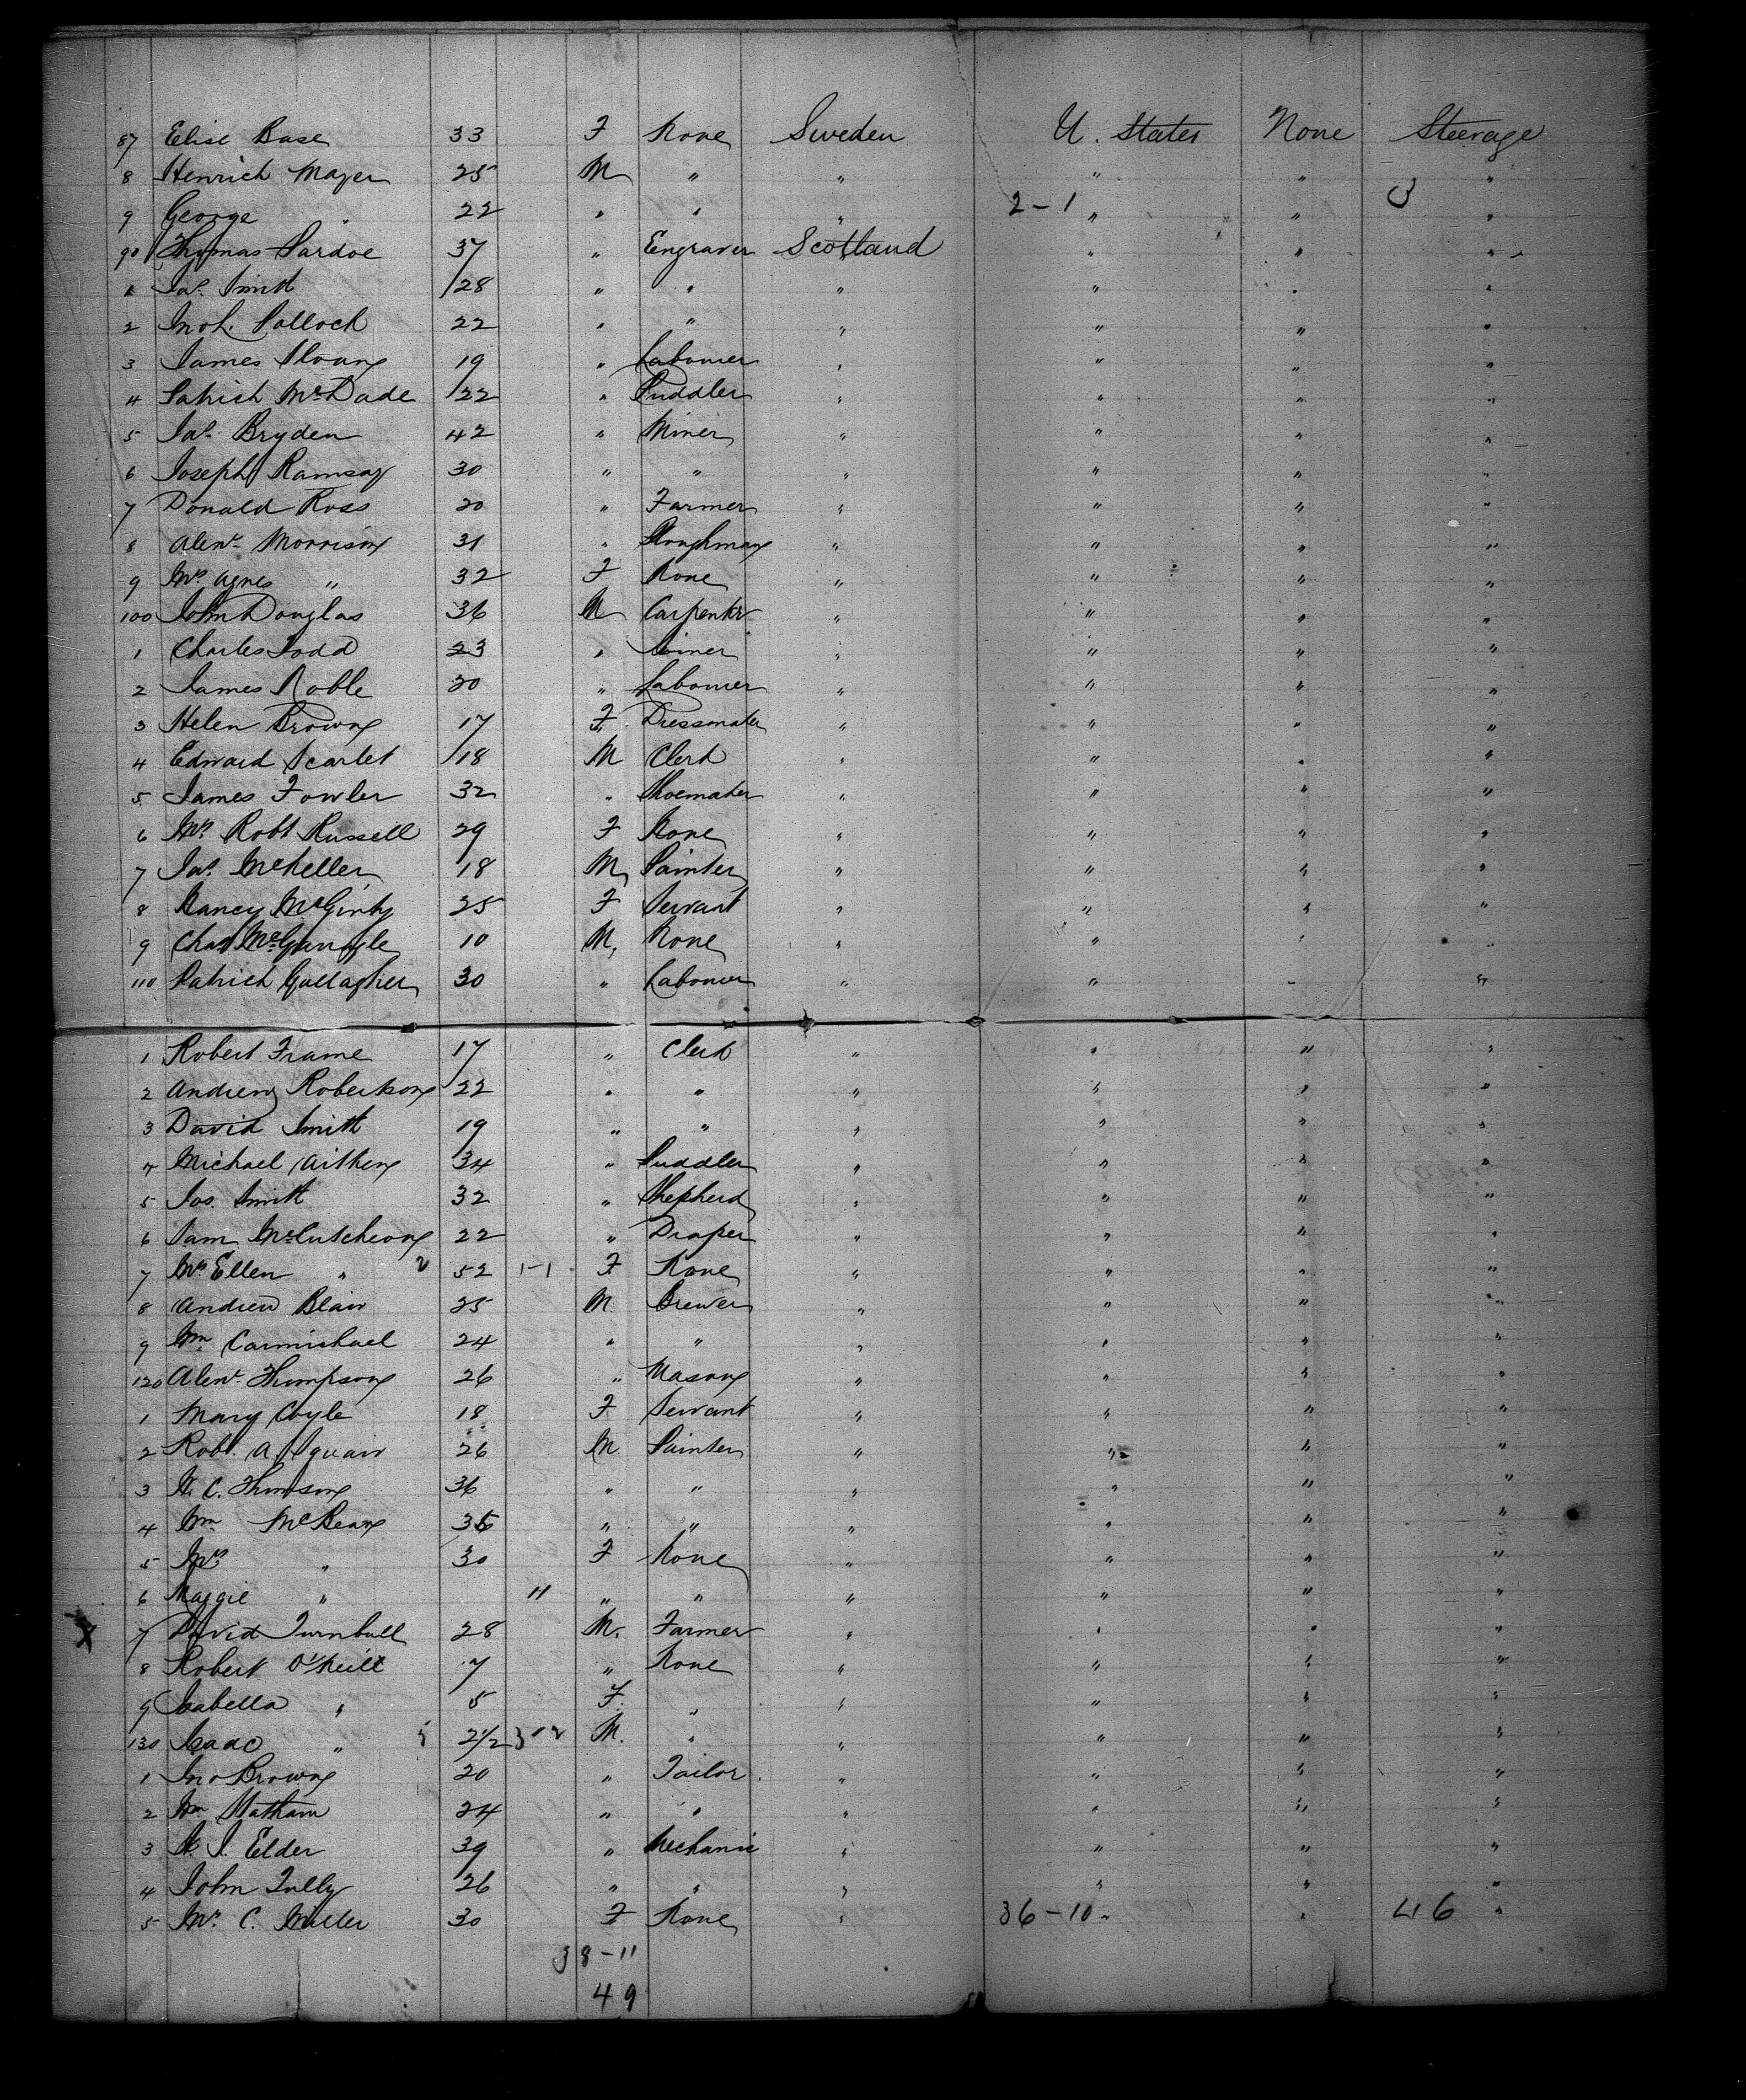 87 Elise Base 33 F None Sweden U. States None Steerage
8 Henrich Mayer 25 M " " " " "
9 George " 22 " " " 2-1 " " 3 "
90 Thomas Pardoe 37 " Engraver Scotland " " "
1 Jas. Smith 28 " " " " " "
2 Jno h. Pollock 22 " " " " " "
3 James Sloang 19 " Labourer " " " "
4 Patrick McDade 22 " Puddler " " " "
5 Jas. Bryden 42 " Miner " " " "
6 Joseph Ramsay 30 " " " " " "
7 Donald Ross 20 " Farmer " " " "
8 Alexr. Morrison 31 " Ploughman " " " "
9 Mrs Agnes " 32 F None " " " "
100 John Douglas 36 M Carpenter " " " "
1 Charles Todd 23 " Joiner " " " "
2 James Noble 20 " Labourer " " " "
3 Helen Brown 17 F Dressmaker " " " "
4 Edward Scarlet 18 M Clerk " " " "
5 James Fowler 32 " Shoemaker " " " "
6 Mrs Robt Russell 29 F None " " " "
7 Jas. McKeller 18 M Painter " " " "
8 Nancy McGinty 25 F Servant " " " "
9 Chas McGunigle 10 M None " " " "
110 Patrick Gallagher 30 " Labourer " " " "
1 Robert Frame 17 " Clerk " " " "
2 Andrew Robertson 22 " " " " " "
3 David Smith 19 " " " " " "
4 Michael Aitken 34 " Puddler " " " "
5 Jos. Smith 32 " Shepherd " " " "
6 Sam McCutcheon 22 " Draper " " " "
7 Mrs Ellen " 2 52 1-1 F None " " " "
8 Andrew Blair 25 M. Brewer " " " "
9 Wm Carmichael 24 " " " " " "
120 Alexr. Thompson 26 " Mason " " " "
1 Mary Coyle 18 F Servant " " " "
2 Robt. A Squair 26 M. Painter " " " "
3 H. C. Thomson 36 " " " " " "
4 Wm McBean 36 " " " " " "
5 Mrs " 30 F None " " " "
6 Maggie " 11 " " " " " "
X 7 David Turnbull 28 M. Farmer " " " "
8 Robert O'Neill 7 " None " " " "
9 Isabella " 5 F. " " " " "
130 Isaac " 3 2 1/2 3-2 M. " " " " "
1 Jno Brown 20 " Tailor " " " "
2 Wm Statham 24 " " " " " "
3 H. J. Elder 39 " Mechanic " " " "
4 John Tully 26 " " " " " "
5 Mrs C. Miller 30 F None " 36-10 " " 46 "
38-11
49